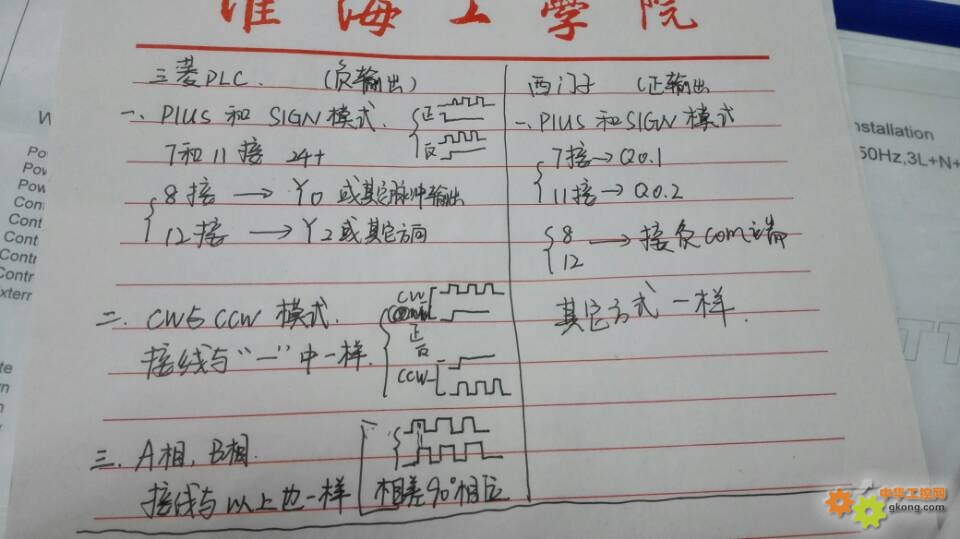 淮海工学院
三菱PLC. (负输出)
一、PIUS 和 SIGN 模式.
正
反
7和11接 24+
8接 → Y0 或其它脉冲输出
12接 → Y2 或其它方向
二. CW与CCW 模式.
接线与“一”中一样.
CW
正
CCW
三. A相、B相.
接线与以上也一样
相差90°相位
西门子 (正输出
一、PIUS和SIGN模式
7接→Q0.1
11接→Q0.2
8 → 接负com端
12
其它方式一样.
nstallation
50Hz,3L+N+
W
Po
Pow
Power
Con
Cont
Contr
Contr
Contr
Exterr
中华工控网
gkong.com